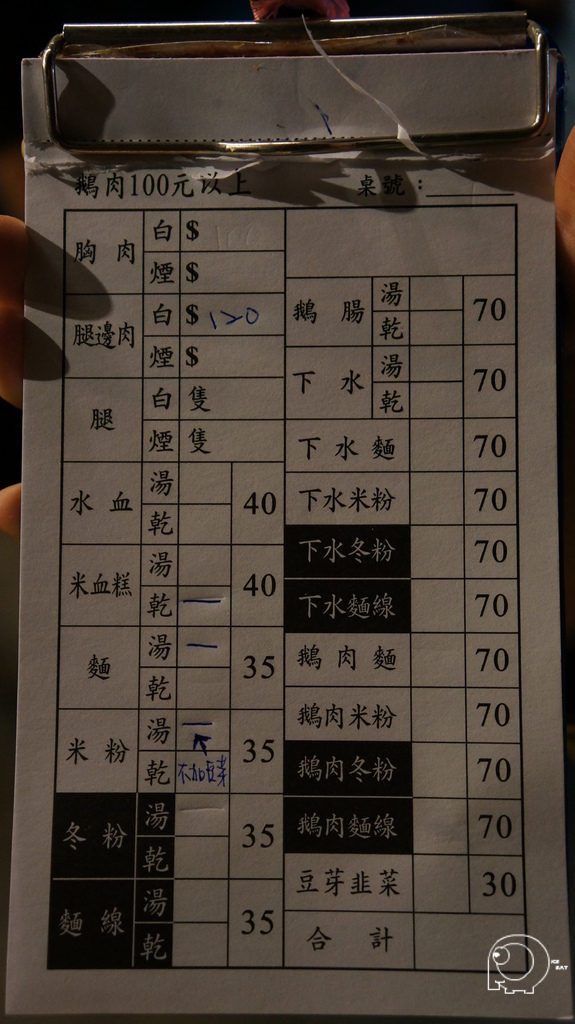 鵝肉100元以上 桌號：
胸肉 白 $
煙 $
腿邊肉 白 $ 120
煙 $
腿 白 隻
煙 隻
水血 湯 40
乾
米血糕 湯 40
乾 一
麵 湯 一 35
乾
米粉 湯 一 35
乾 不加豆芽
冬粉 湯 35
乾
麵線 湯 35
乾
鵝腸 湯 70
乾
下水 湯 70
乾
下水麵 70
下水米粉 70
下水冬粉 70
下水麵線 70
鵝肉麵 70
鵝肉米粉 70
鵝肉冬粉 70
鵝肉麵線 70
豆芽韭菜 30
合計